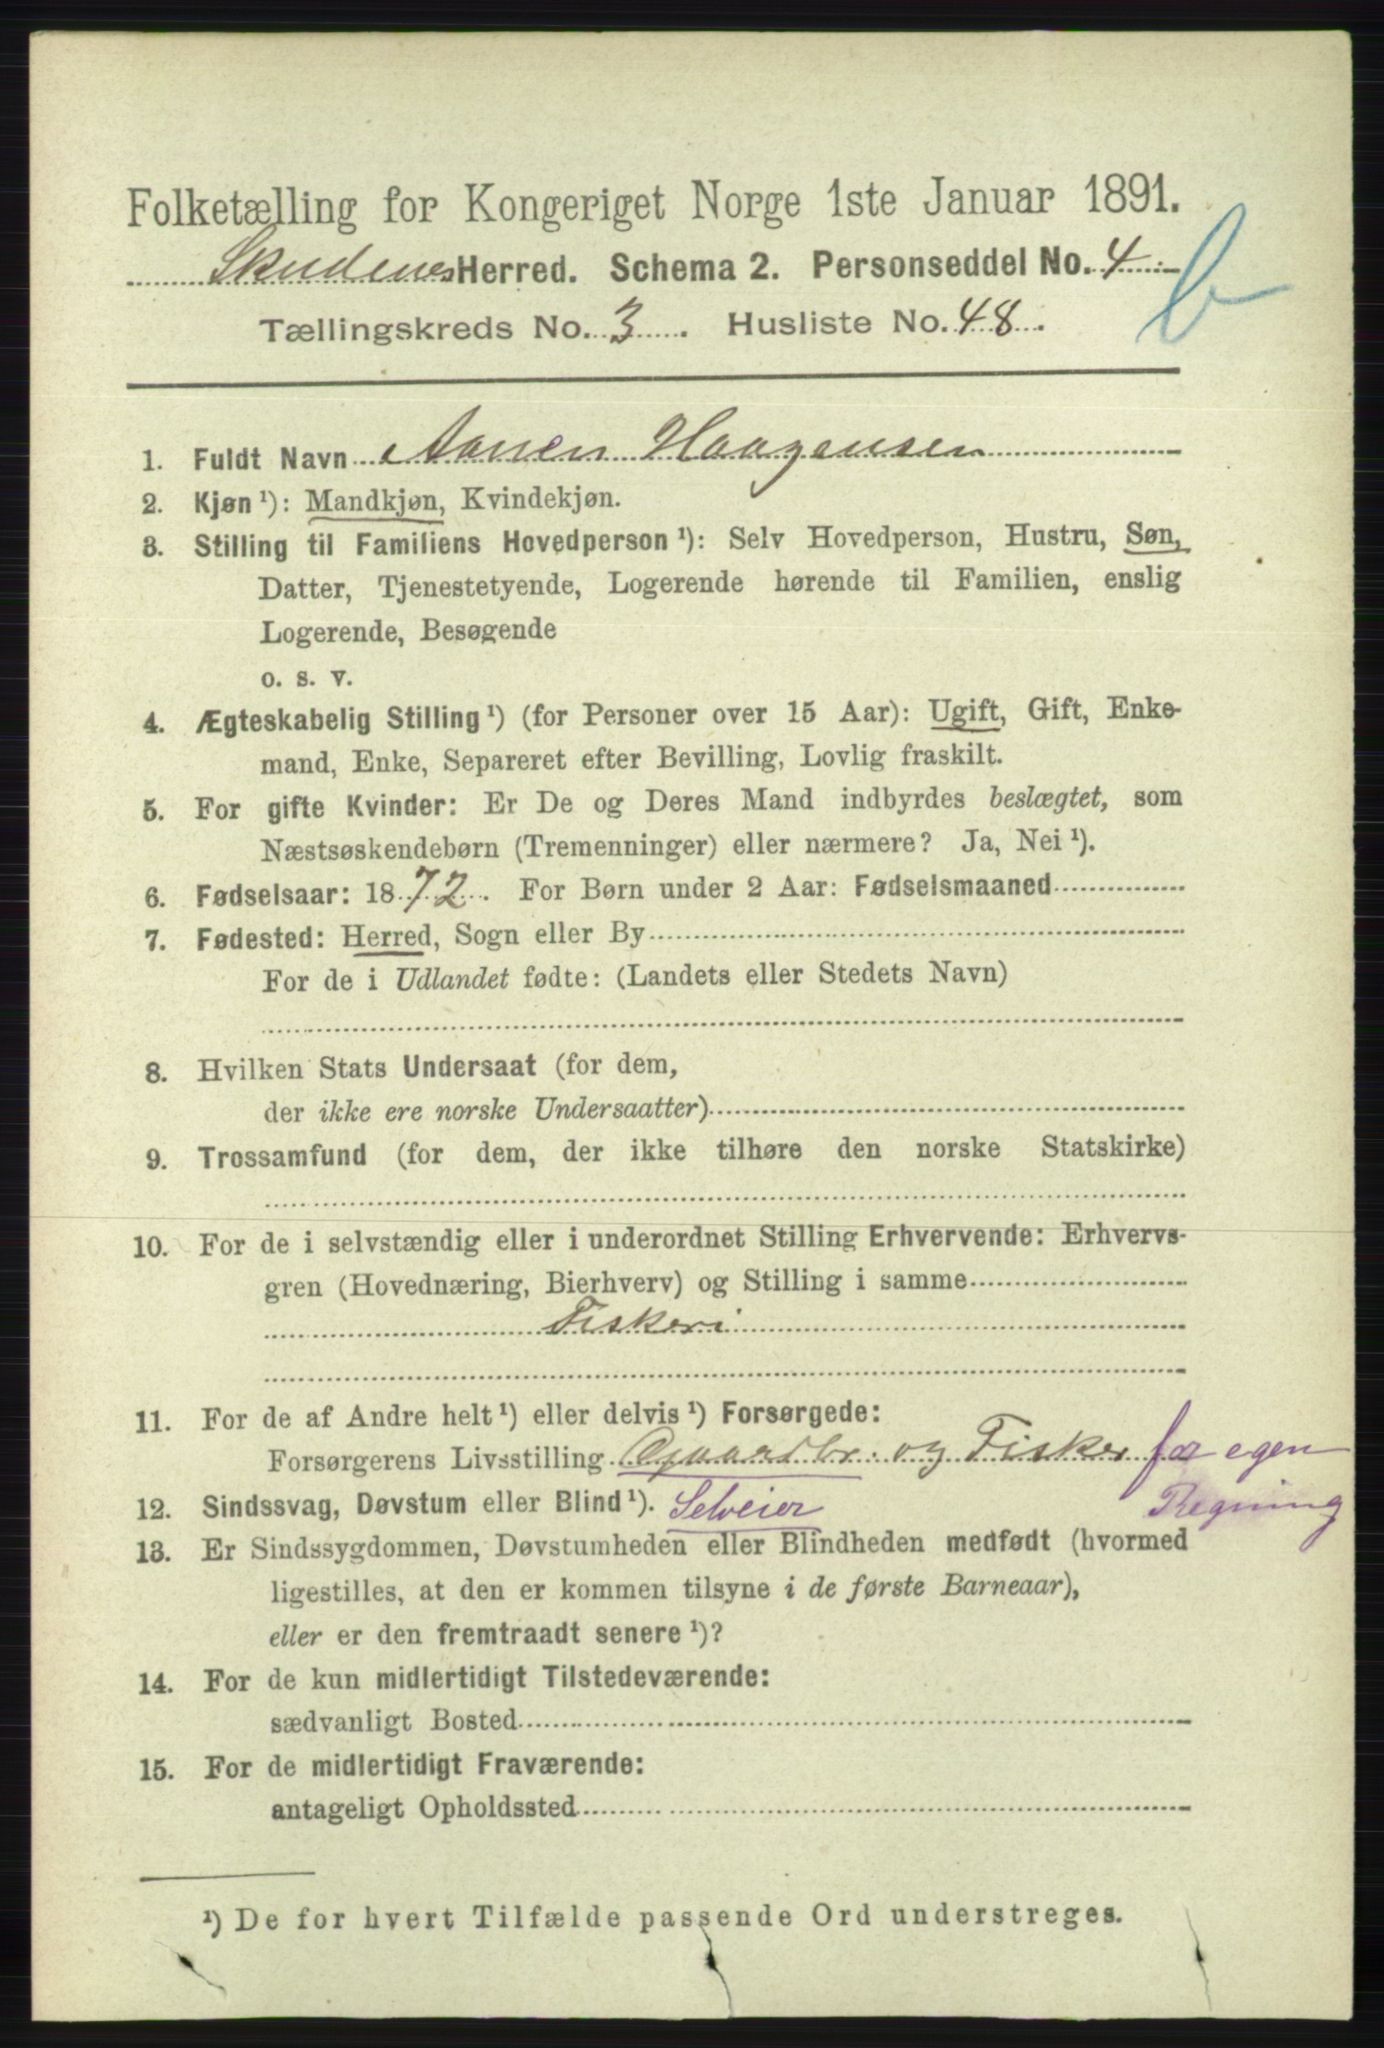 Folketælling for Kongeriget Norge 1ste Januar 1891.
Skudenes Herred. Schema 2. Personseddel No. 4
b
Tællingskreds No. 3. Husliste No. 48.
1. Fuldt Navn Aanen Haagensen
2. Kjøn¹): Mandkjøn, Kvindekjøn.
3. Stilling til Familiens Hovedperson¹): Selv Hovedperson, Hustru, Søn,
Datter, Tjenestetyende, Logerende hørende til Familien, enslig
Logerende, Besøgende
o. s. v.
4. Ægteskabelig Stilling¹) (for Personer over 15 Aar): Ugift, Gift, Enke-
mand, Enke, Separeret efter Bevilling, Lovlig fraskilt.
5. For gifte Kvinder: Er De og Deres Mand indbyrdes beslægtet, som
Næstsøskendebørn (Tremenninger) eller nærmere? Ja, Nei¹).
6. Fødselsaar: 1872. For Børn under 2 Aar: Fødselsmaaned
7. Fødested: Herred, Sogn eller By
For de i Udlandet fødte: (Landets eller Stedets Navn)
8. Hvilken Stats Undersaat (for dem,
der ikke ere norske Undersaatter)
9. Trossamfund (for dem, der ikke tilhøre den norske Statskirke)
10. For de i selvstændig eller i underordnet Stilling Erhvervende: Erhvervs-
gren (Hovednæring, Bierhverv) og Stilling i samme
Fiskeri
11. For de af Andre helt¹) eller delvis¹) Forsørgede:
Forsørgerens Livsstilling Gaardbr. og Fisker for egen
Regning
12. Sindssvag, Døvstum eller Blind¹). Selveier
13. Er Sindssygdommen, Døvstumheden eller Blindheden medfødt (hvormed
ligestilles, at den er kommen tilsyne i de første Barneaar),
eller er den fremtraadt senere¹)?
14. For de kun midlertidigt Tilstedeværende:
sædvanligt Bosted
15. For de midlertidigt Fraværende:
antageligt Opholdssted
¹) De for hvert Tilfælde passende Ord understreges.